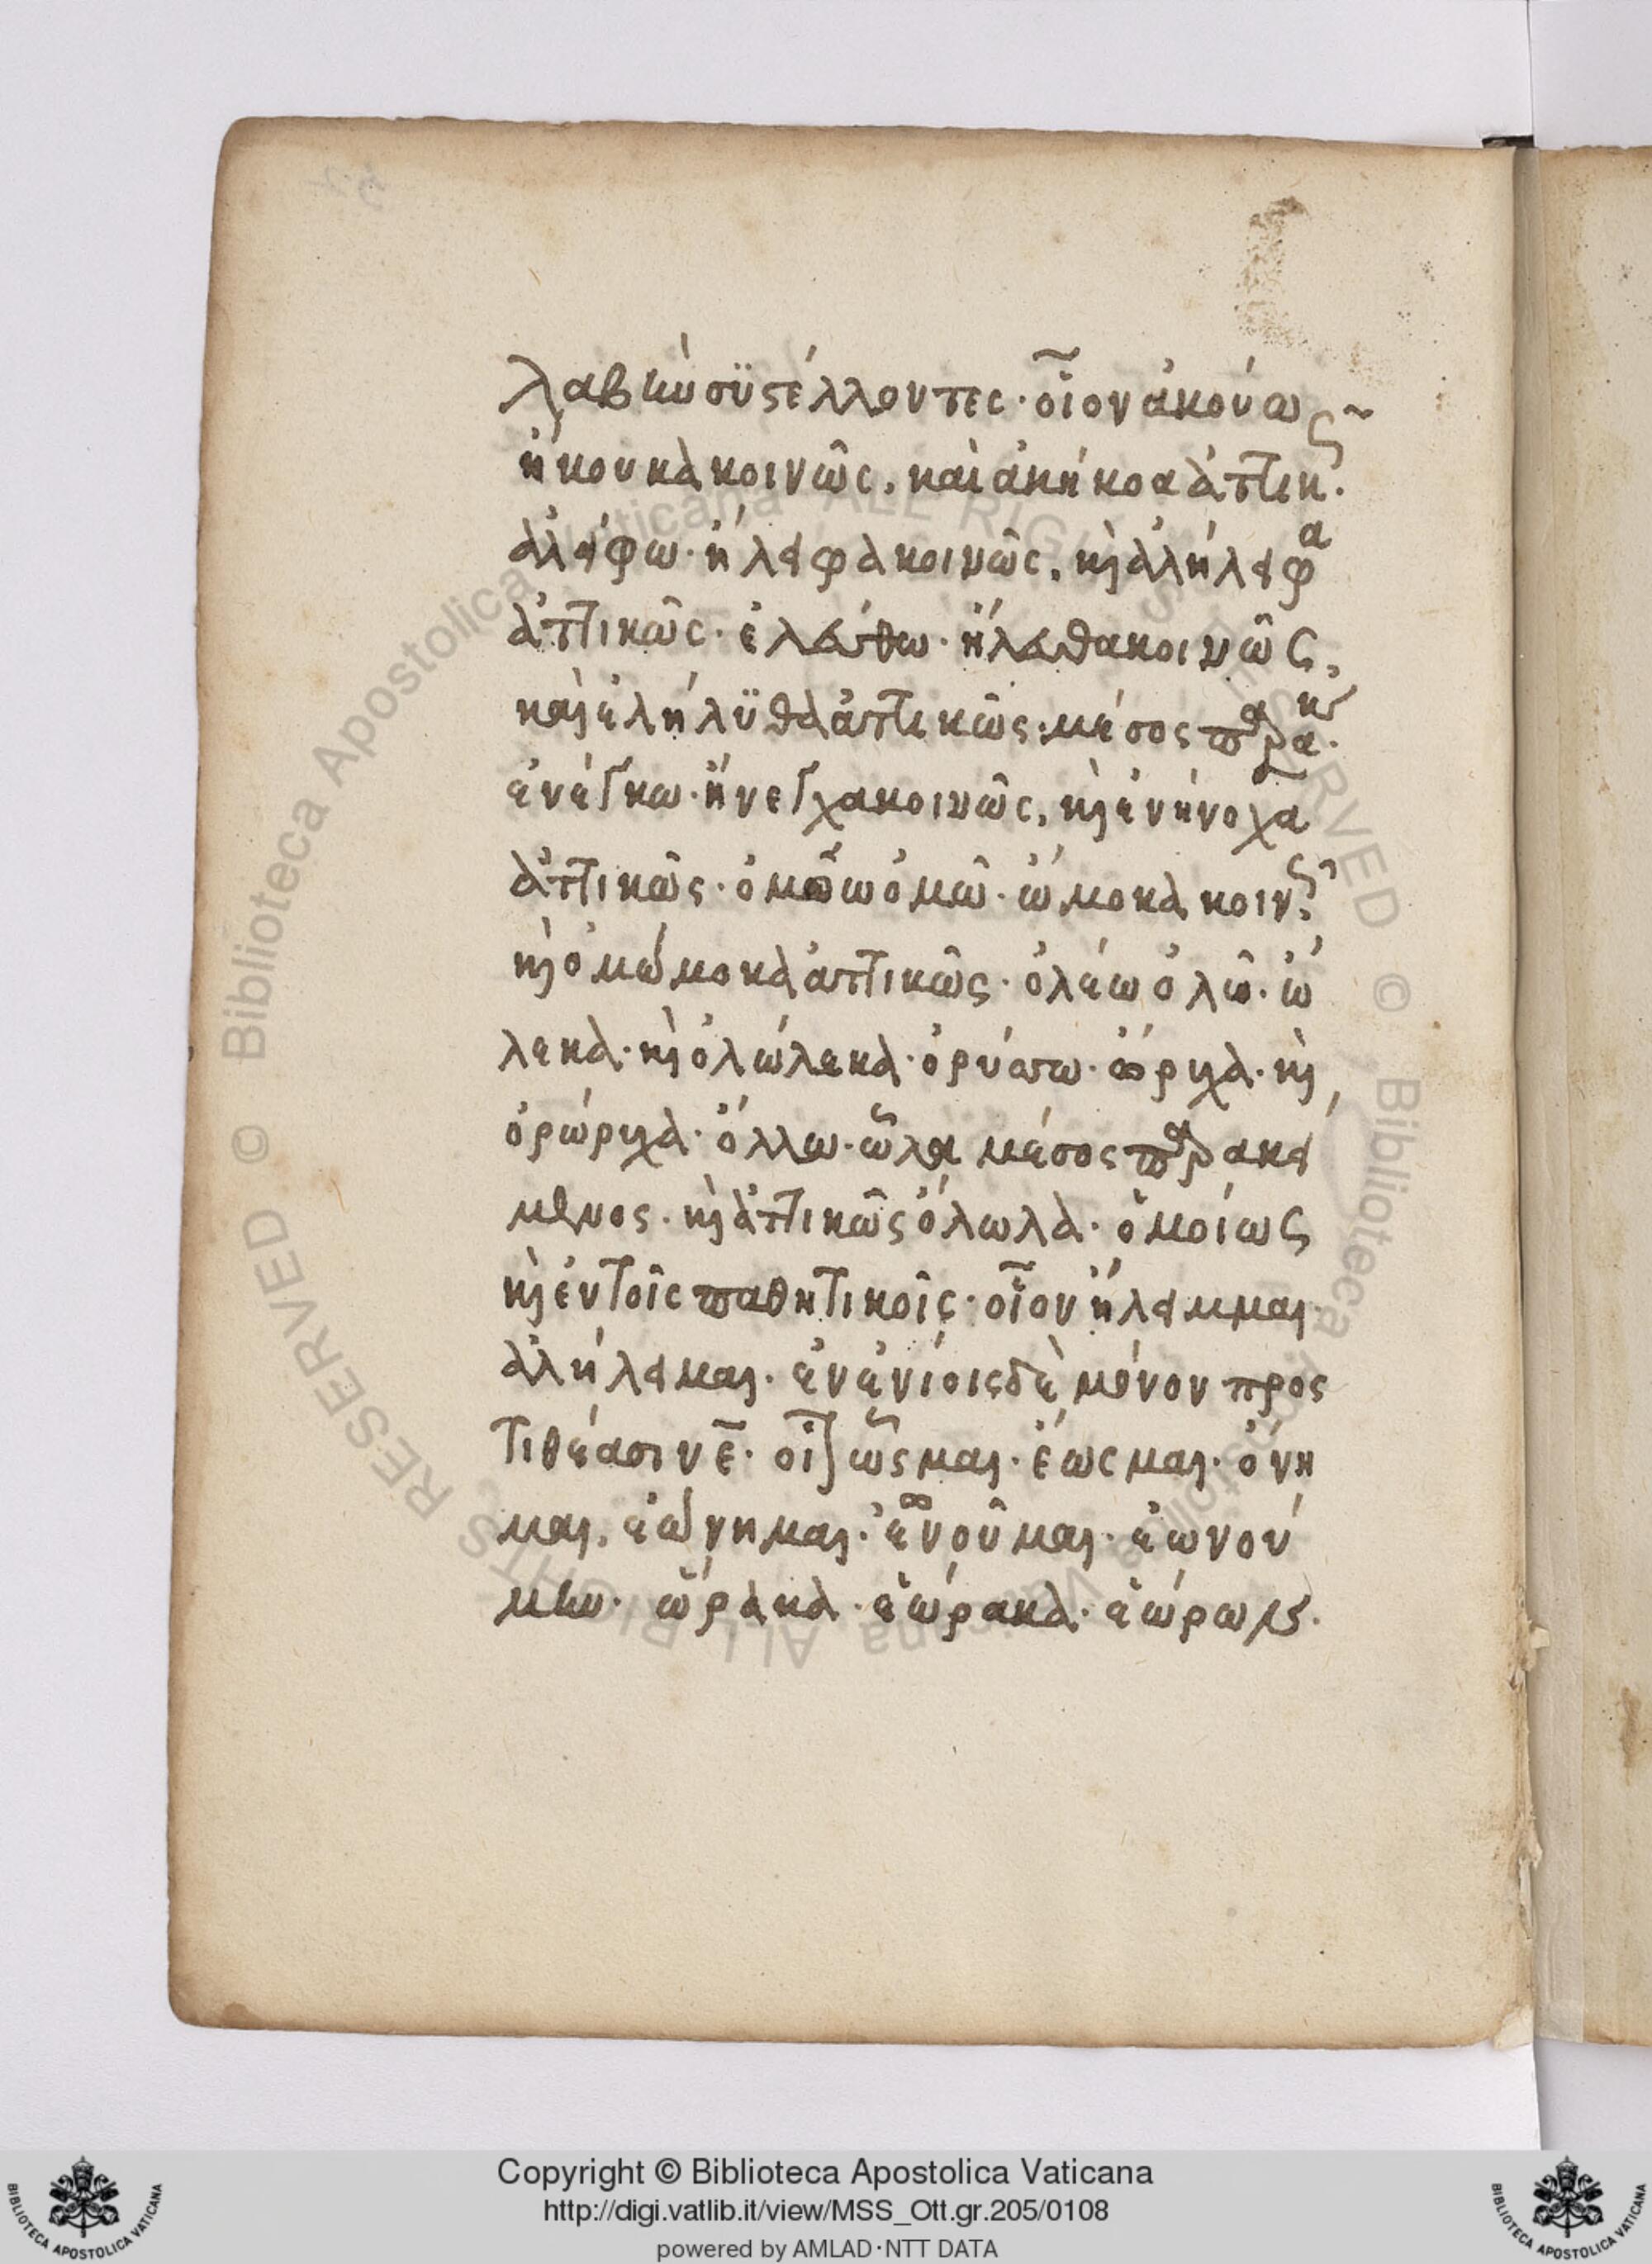 λαβὴν συστέλλοντες· οἷον ἀκούω
ἤκουκα κοινῶς, καὶ ἀκήκοα ἀττικ῀ς.
ἀλείφω· ἤλειφα κοινῶς, κ̀ ἀλήλειφα
ἀττικῶς· ἐλεύθω· ἤλευθα κοινῶς,
καὶ ἐλήλϋθα ἀττικῶς· μέσος παρακ.
ἐνέγκω· ἤνεγχα κοινῶς, κ̀ ἐνήνοχα
ἀττικῶς· ὀμόω ὀμῶ· ὤμοκα κοιν῀ς
κ̀ ὀμώμοκα ἀττικῶς· ὀλέω ὀλῶ· ὤ
λεκα· κ̀ ὀλώλεκα· ὀρύττω· ὤρυχα· κ̀
ὀρώρυχα· ὄλλω· ὦλα μέσος παρακεί
μενος· κ̀ ἀττικῶς ὄλωλα· ὁμοίως
κ̀ ἐν τοῖς παθητικοῖς· οἷον ἤλειμμαι·
ἀλήλειμαι· ἐν ἐνίοις δὲ μόνον προς
τιθέασιν ε̄· οἷον ὦσμαι· ἔωσμαι· ὄνη
μαι, ἐώνημαι· ὠνοῦμαι· ἐωνού
μην· ὥρακα· ἑώρακα· ἑώρων
Copyright © Biblioteca Apostolica Vaticana
http://digi.vatlib.it/view/MSS_Ott.gr.205/0108
powered by AMLAD·NTT DATA